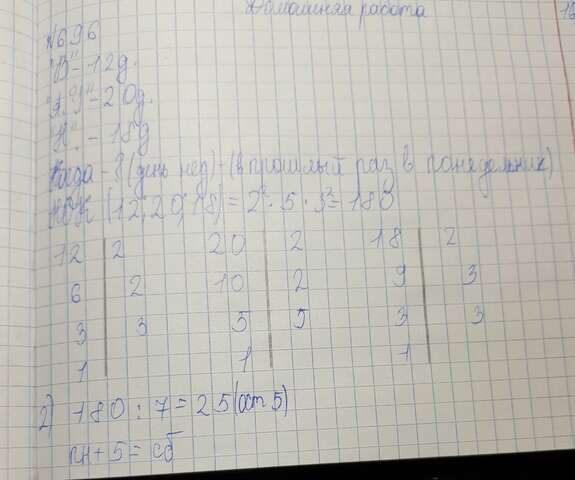 Домашняя работа 16
№696
"В" - 12д.
- 20д.
"Н". - 18д
Когда - ? (день нед) - (в прошлый раз в понедельник)
НОК (12;20;18) = 2² · 5 · 3² = 180
12 | 2 20 | 2 18 | 2
6 | 2 10 | 2 9 | 3
3 | 3 5 | 5 3 | 3
1 | 1 | 1 |
2) 180 : 7 = 25 (ост 5)
пн + 5 = сб